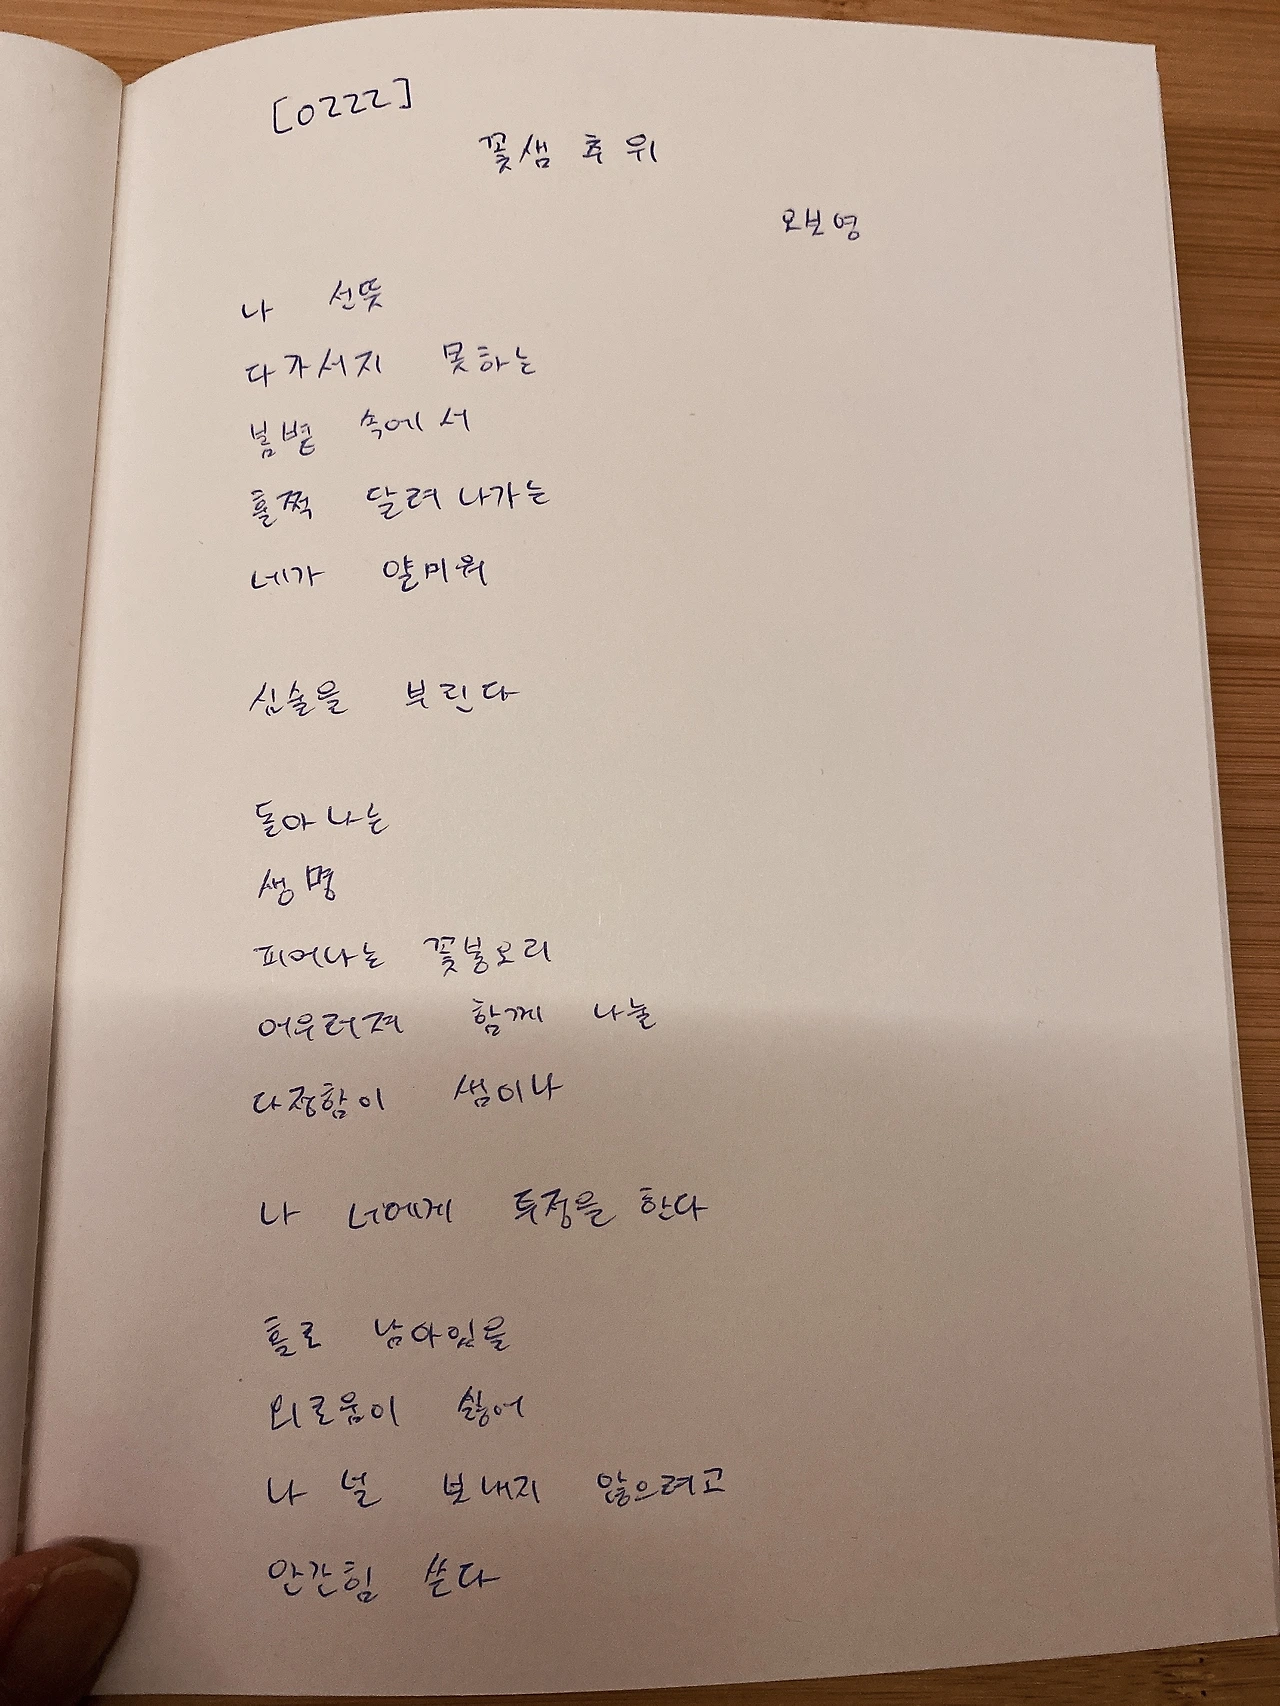 [0222]
꽃샘 추위
오보영
나 선뜻
다가서지 못하는
봄볕 속에서
훌쩍 달려나가는
네가 얄미워
심술을 부린다
돋아나는
생명
피어나는 꽃봉오리
어우러져 함께 나눌
다정함이 샘이나
나 너에게 투정을 한다
홀로 남아있을
외로움이 싫어
나 널 보내지 않으려고
안간힘 쓴다